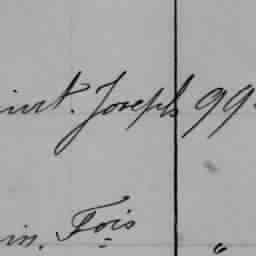 int. Joseph 99
in. Fois "